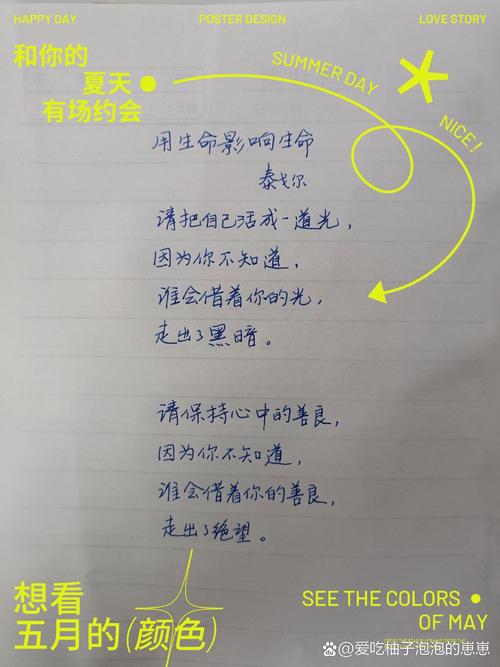 HAPPY DAY
POSTER DESIGN
LOVE STORY
和你的
夏天
有场约会
SUMMER DAY
NICE!
用生命影响生命
泰戈尔
请把自己活成一道光，
因为你不知道，
谁会借着你的光，
走出了黑暗。
请保持心中的善良，
因为你不知道，
谁会借着你的善良，
走出了绝望。
想看
五月的(颜色)
SEE THE COLORS
OF MAY
@爱吃柚子泡泡的崽崽